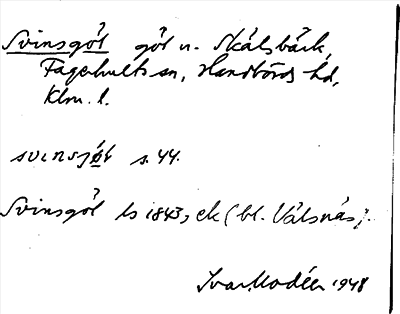 Svinsgöl göl n. Skälsbäck,
Fagerhults sn, Handbörds hd,
Klm. l.
svinsjöt s. 44.
Svinsgöl ls 1843, ek (bl. Välsnäs).
Ivar Modéer 1948